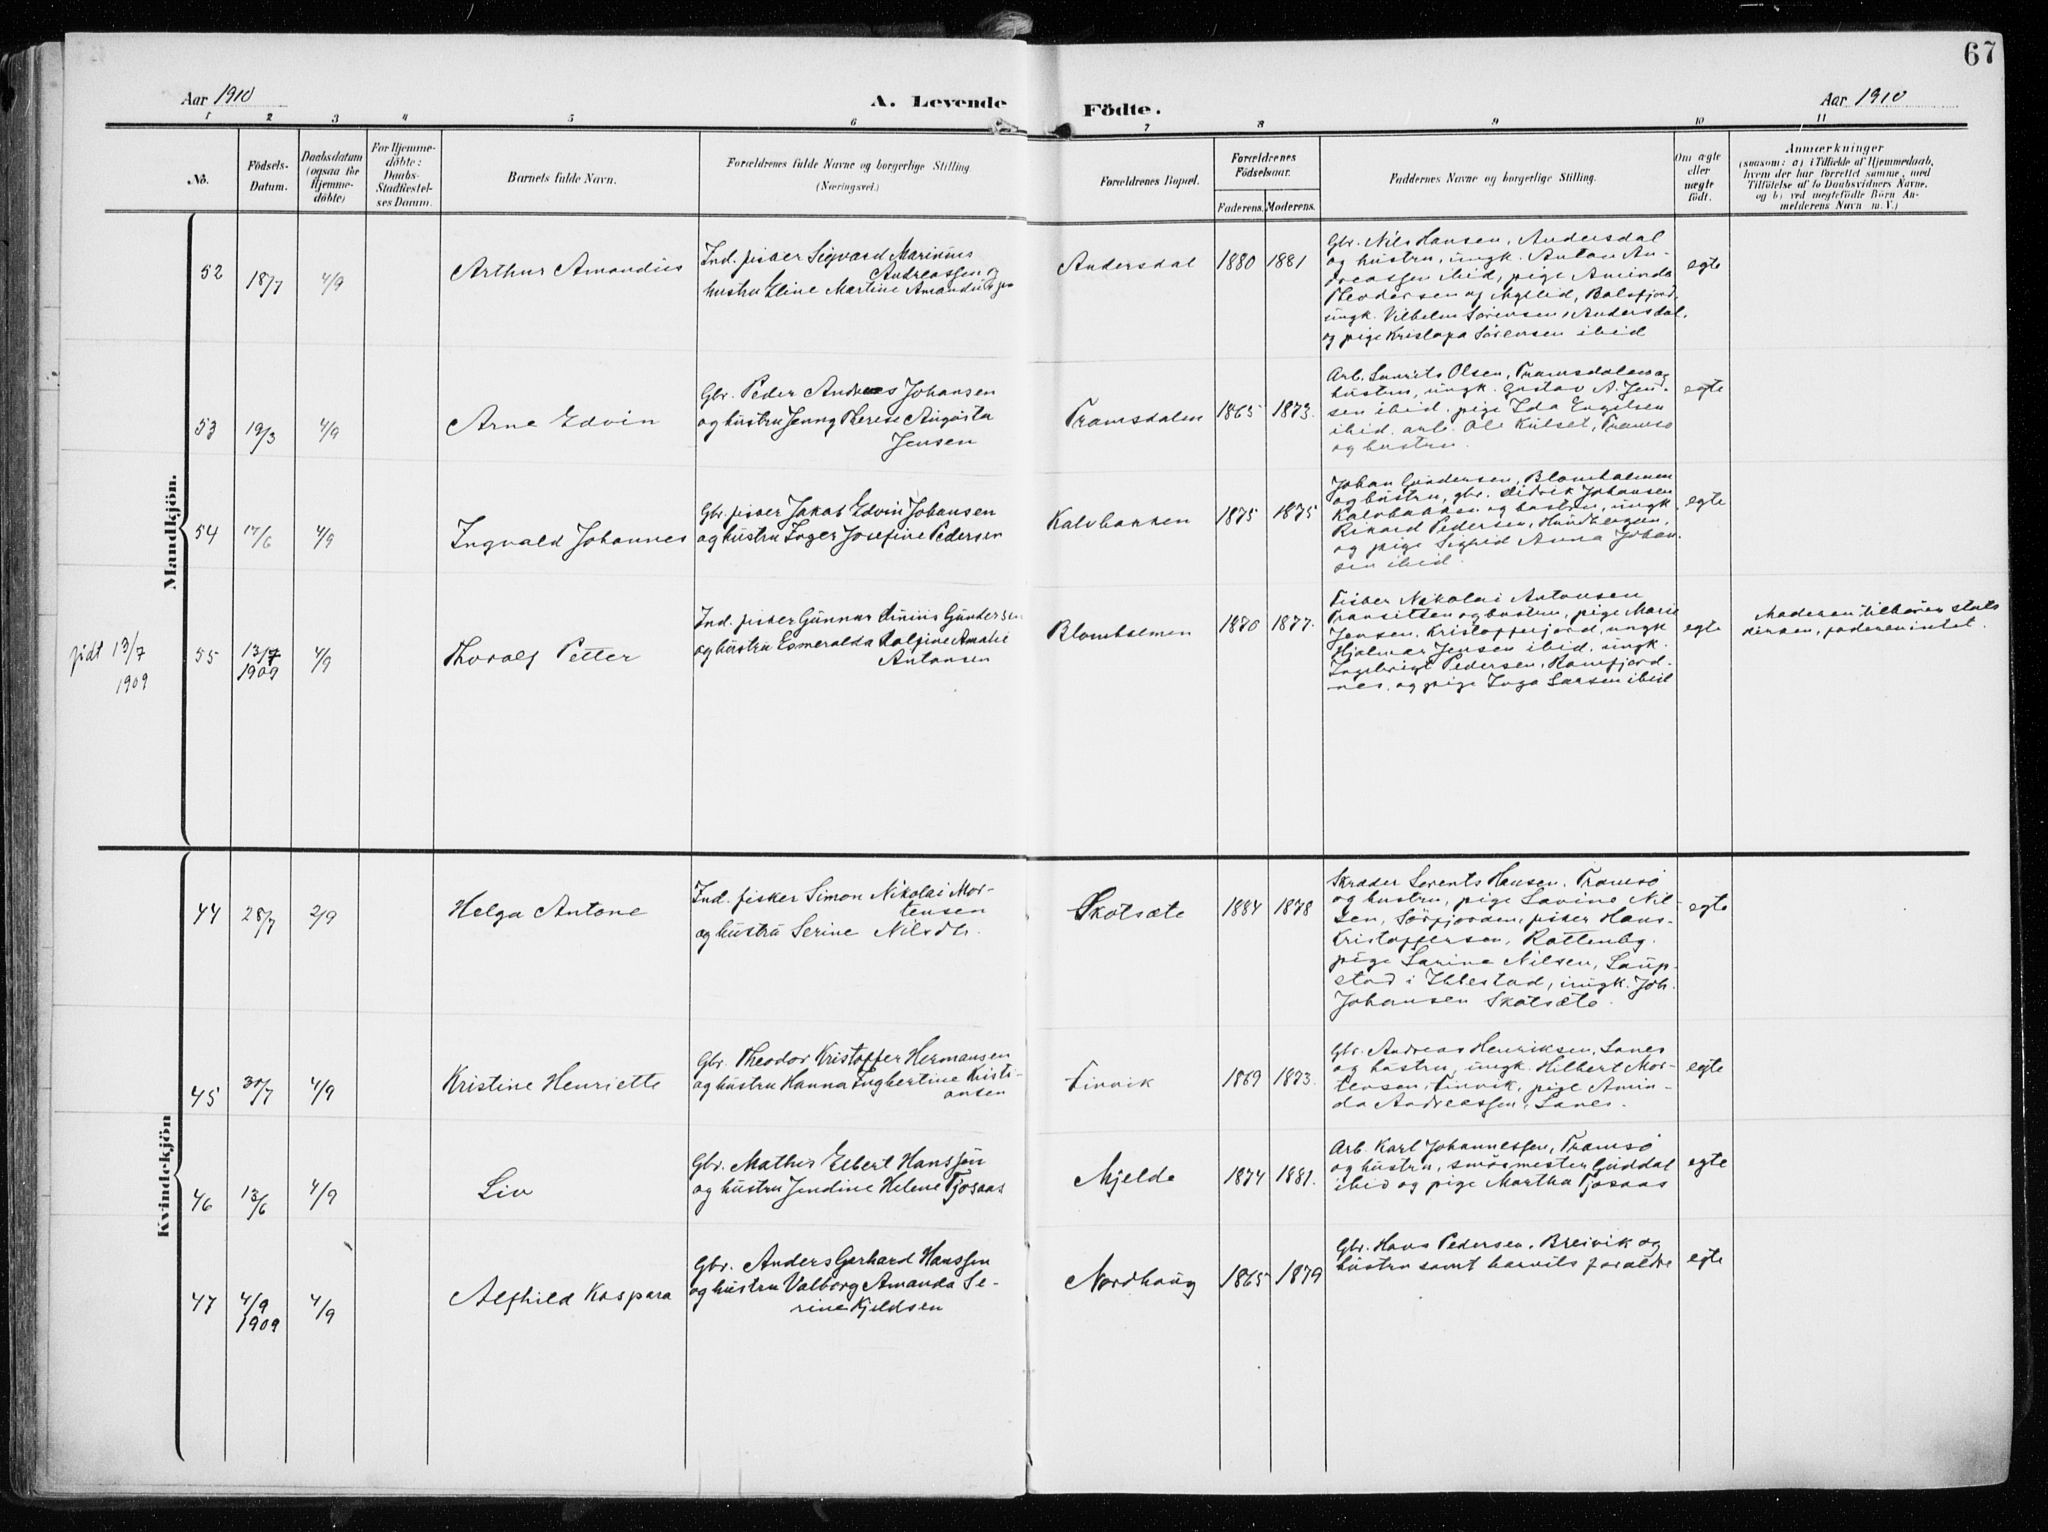 67
Aar 1910
A. Levende Födte.
Aar 1910
1 2 3 4 5 6 7 8 9 10 11
No.
Födsels-
Datum.
Daabsdatum
(ogsaa for
Hjemme-
döbte)
For Hjemme-
döbte:
Daabs-
Stadfæstel-
ses Datum.
Barnets fulde Navn.
Forældrenes fulde Navne og borgerlige Stilling.
(Næringsvei.)
Forældrenes Bopæl.
Forældrenes
Födselsaar.
Faderens. Moderens.
Faddernes Navne og borgerlige Stilling.
Om ægte
eller
uægte
födt.
Anmærkninger
(saasom: a) i Tilfælde af Hjemmedaab,
hvem der har forrettet samme, med
Tilföielse af to Daabsvidners Navne,
og b) ved uægtefödte Börn An-
melderens Navn m. V.)
Mandkjön.
52 18/7 4/9
Arthur Amandius
Ind. fisker Sigvard Marinius
Andreassen og
hustru Eline Martine
Andersdal
1880 1881
Gbr. Nils Hansen, Andersdal
og hustru, ungk. Anton An-
dreassen ibid, pige Aminda
Theodorsen og Mylid, Balsfjord,
ungk. Vilhelm Sørensen, Andersdal,
og pige Kristofa Sørensen ibid
egte
53 19/3 4/9
Arne Edvin
Gbr. Peder Andreas Johansen
og hustru Jenny Therese Augusta
Jensen
Tromsdalen
1865 1873.
Arb. Laurits Olsen, Tromsdalen og
hustru, ungk. Gustav A. Jen-
sen ibid, pige Ida Engelsen
ibid. arb. Ole Kulset, Tromsø
og hustru.
egte
54 17/6 4/9
Ingvald Johannes
Gbr. fisker Jakob Edvin Johansen
og hustru Inger Josefine Pedersen
Kalvbakken
1875 1875
Johan Gundersen, Blomholmen
og hustru, gbr. Didrik Johansen
Kalvbakken og hustru, ungk.
Rikard Pedersen, Hundbergen,
og pige Sigrid Anna Johan-
sen ibid.
egte
födt 13/7
1909
55 13/7
1909 4/9
Thoralf Petter
Ind. fisker Gunnar Linius Gundersen
og hustru Esmeralda Kolfine Amalie
Antonsen
Blomholmen
1870 1877.
Fisker Nikolai Antonsen
og hustru, pige Marie
Jensen, Kristofferjord, ungk
Hjalmar Jensen ibid. ungk.
Ingebrigt Pedersen, Ramfjord-
nes. og pige Inga Larsen ibid
egte
Moderen tilhører stats
kirken, faderen intet.
Kvindekjön
44 28/7 2/9
Helga Antone
Ind. fisker Simon Nikolai Mor-
tensen
og hustru Serine Nilsdtr.
Skotsæte
1884 1878
Skræder Lorents Hansen, Tromsø
og hustru, pige Lovine Nil-
sen, Sørfjorden, fisker Hans
Kristoffersen, Rottenbg.
pige Larina Nilsen, Laup-
stad i Ibbestad, ungk. Joh.
Johansen Skotsæte.
egte
45 30/7 4/9
Kristine Henriette
Gbr. Theodor Kristoffer Hermansen
og hustru Hanna Ingbertine Kristi-
ansen
Finvik
1869 1873.
Gbr. Andreas Henriksen, Lanes
og hustru, ungk. Hilbert Mor-
tensen, Finvik, pige Amin-
da Andreassen, Lanes.
egte
46 13/6 4/9
Liv
Gbr. Mathis Elbert Hanssen
og hustru Jendine Helene Fjosaas
Mjelde
1874 1881.
Arb. Karl Johannessen, Tromsø
og hustru, smörmester Guddal
ibid og pige Martha Fjosaas
egte
47 4/9
1909 4/9
Alfhild Kaspara
Gbr. Anders Gerhard Hanssen
og hustru Valborg Amanda Se-
rine Kjeldsen
Nordhaug
1865 1879
Gbr. Hans Pedersen, Breivik og
hustru samt barnets forældre
egte